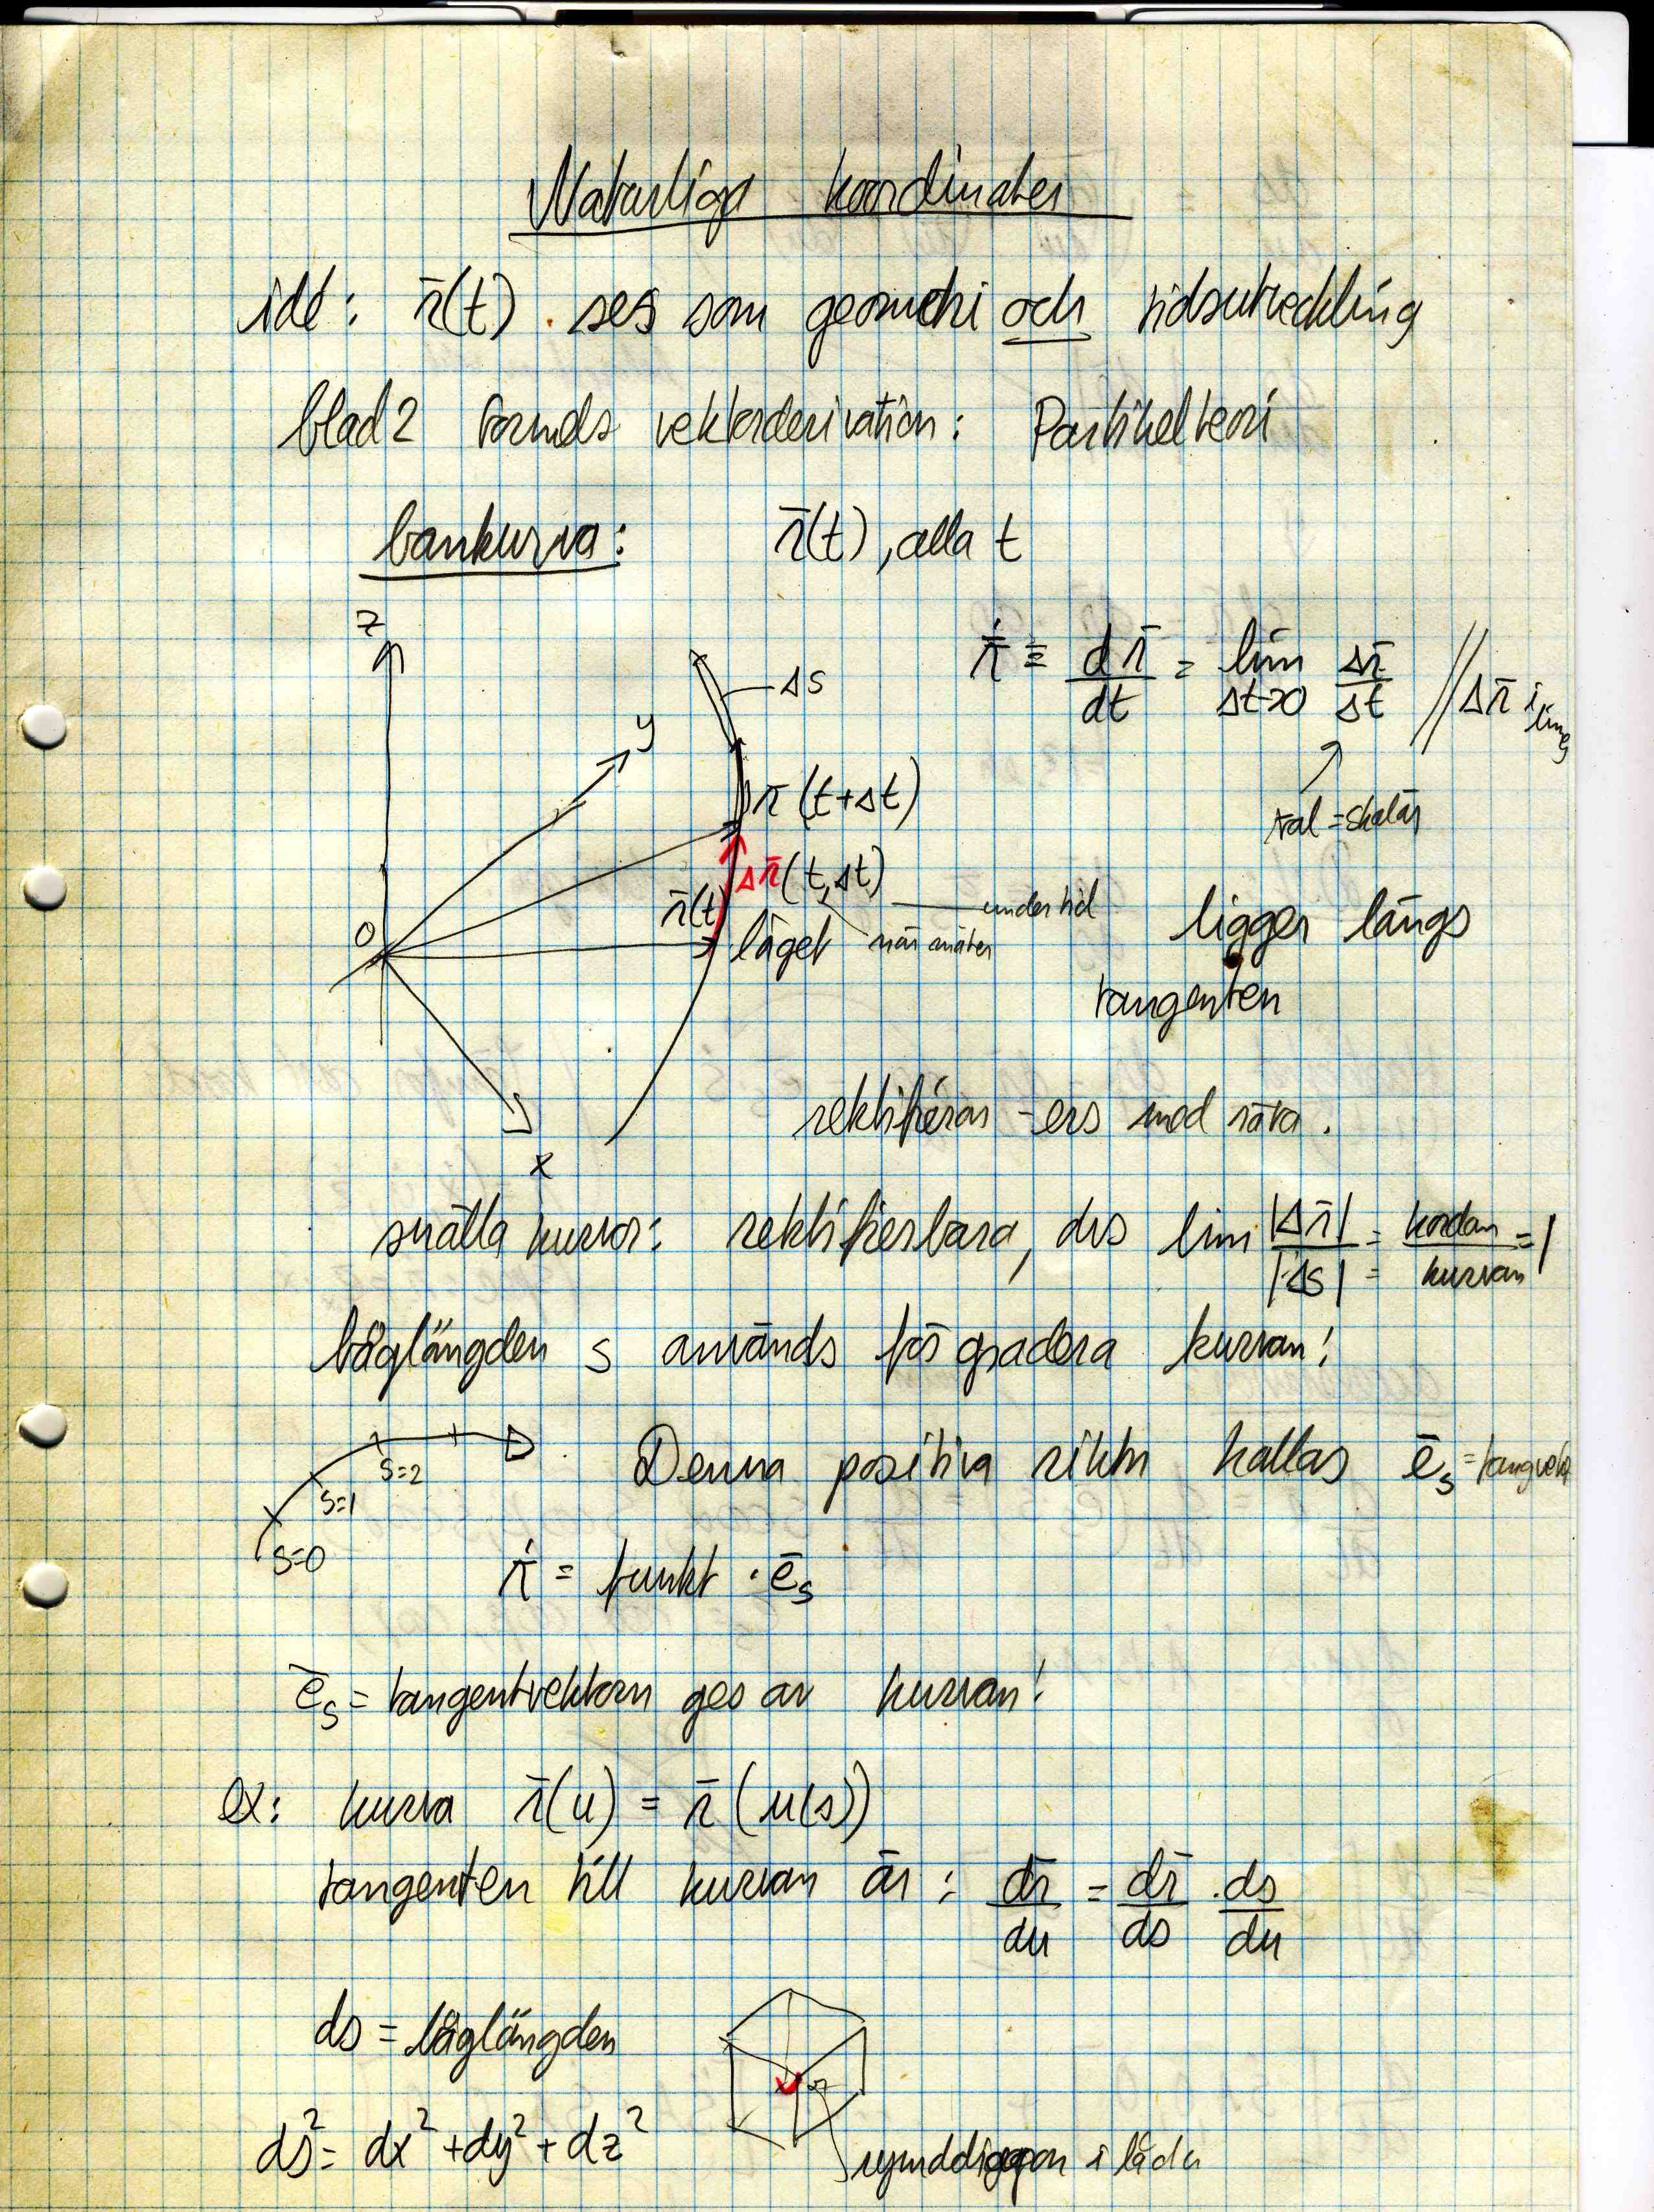 Naturliga koordinater
idé: r̄(t) ses som geometri och tidsutveckling
blad 2 vektorderivation: Partikelteori
bankurva: r̄(t), alla t
z
y
x
0
Δs
r̄(t+Δt)
Δr̄(t,Δt)
r̄(t)
läget
under tid
när mäter
ṙ ≡ dr̄/dt = lim Δt→0 Δr̄/Δt // Δr̄ i limes
tal = skalär
ligger längs
tangenten
rektifieras - ers med räta.
snälla kurvor: rektifierbara, dvs lim |Δr̄|/|Δs| = kordan/kurvan = 1
båglängden s används för gradera kurvan!
s=0
s=1
s=2
Denna positiva riktn kallas ēs = tangvekt
ṙ = funkt · ēs
ēs = tangentvektorn ges av kurvan!
ex: kurva r̄(u) = r̄(u(s))
tangenten till kurvan är: dr̄/du = dr̄/ds · ds/du
ds = båglängden
ds² = dx² + dy² + dz²
rymddiagon i låda